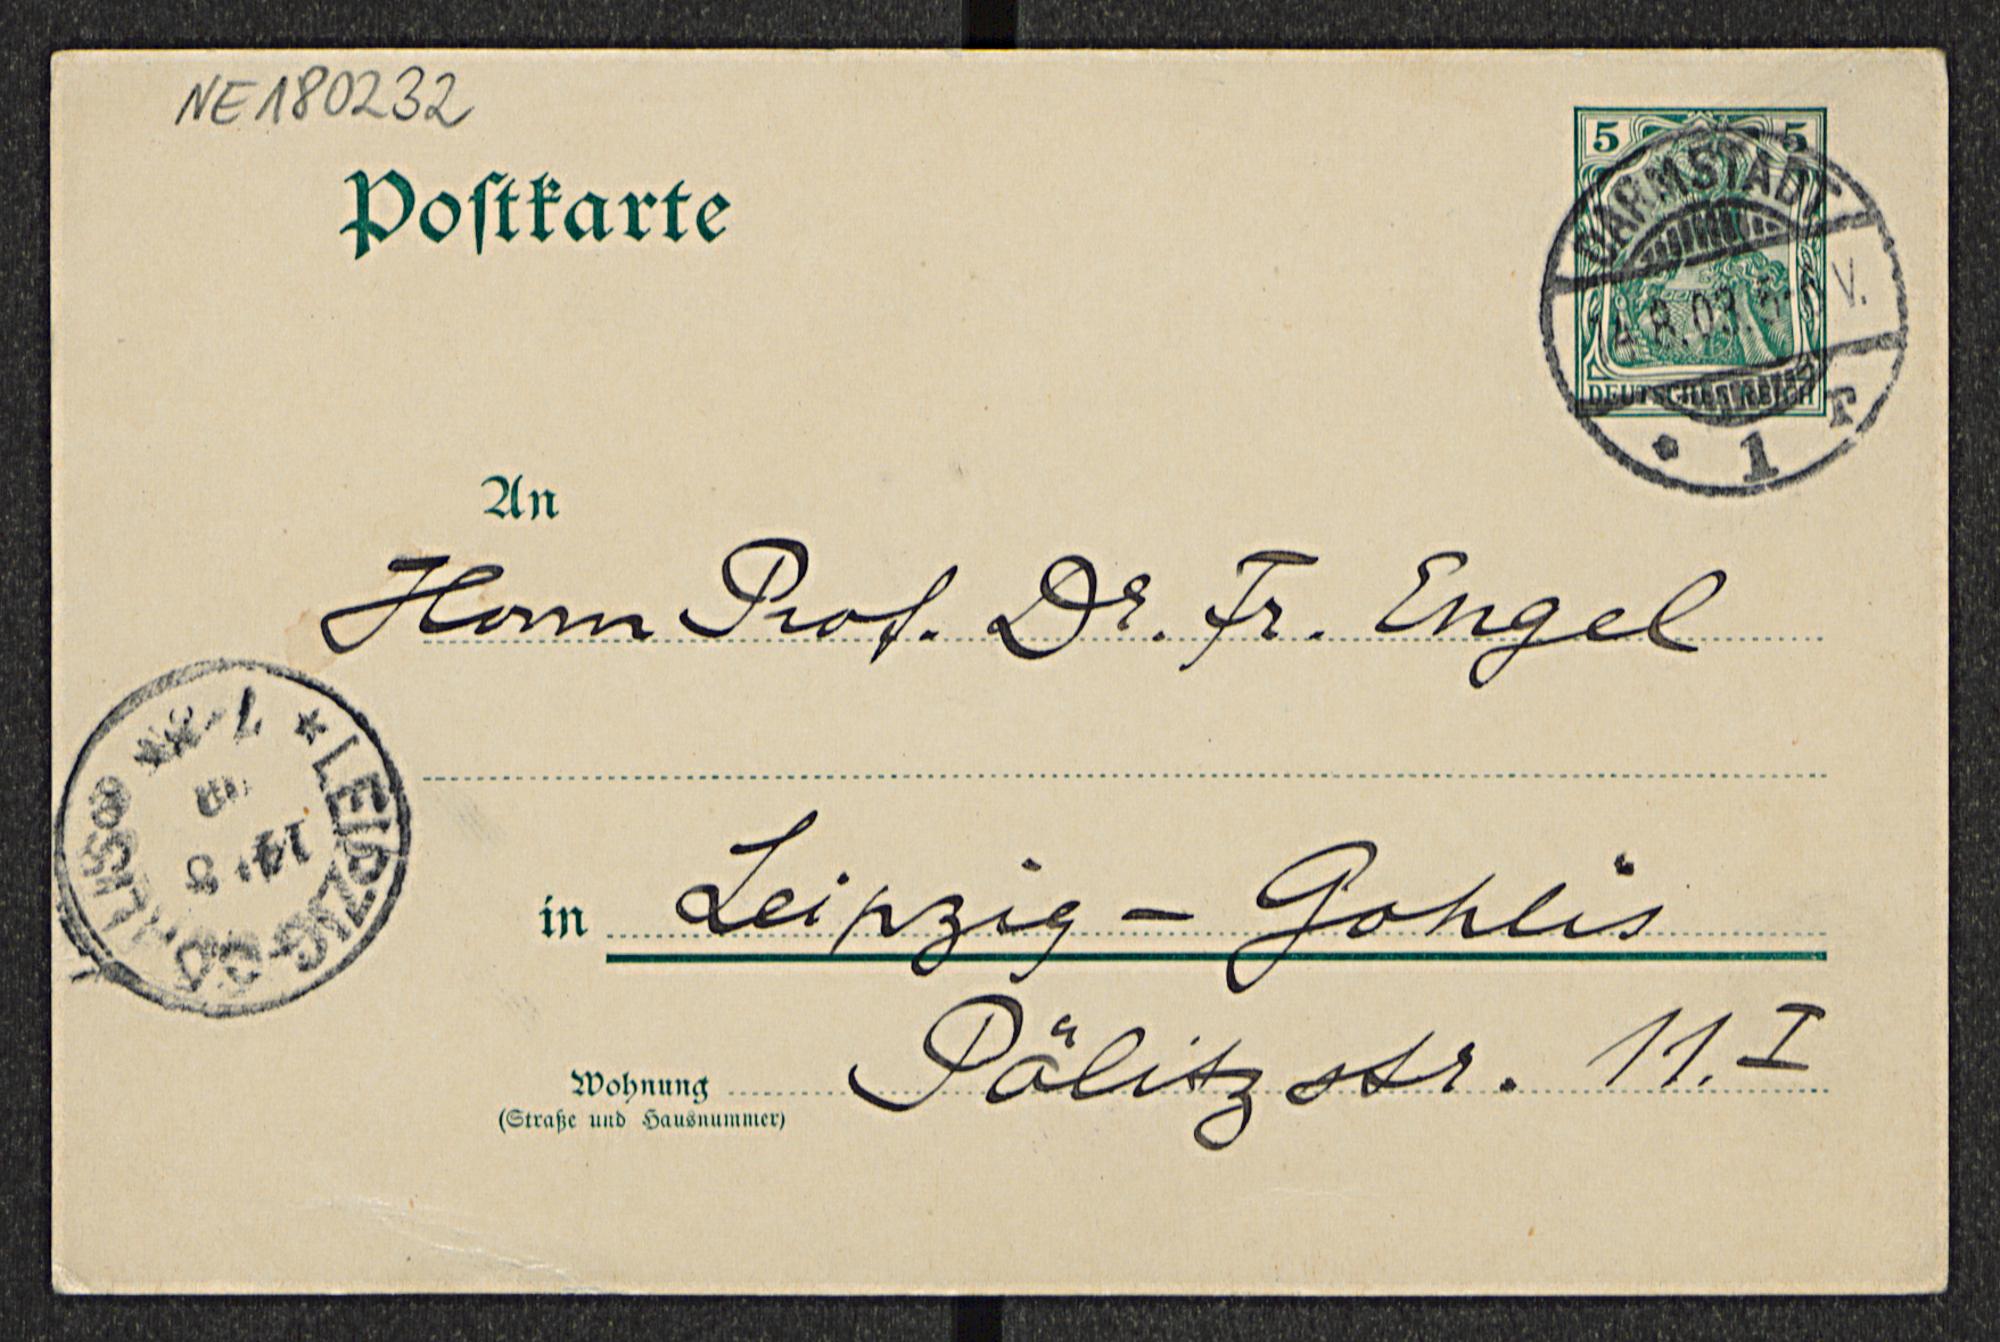 NE180232
Postkarte
5 5
DARMSTADT
8.03.
V.
DEUTSCHES REICH
* 1 F
An
Herrn Prof. Dr. Fr. Engel
* LEIPZIG-GOHLIS
14. 8
7-
in Leipzig - Gohlis
Pölitzstr. 11. I
Wohnung
(Straße und Hausnummer)